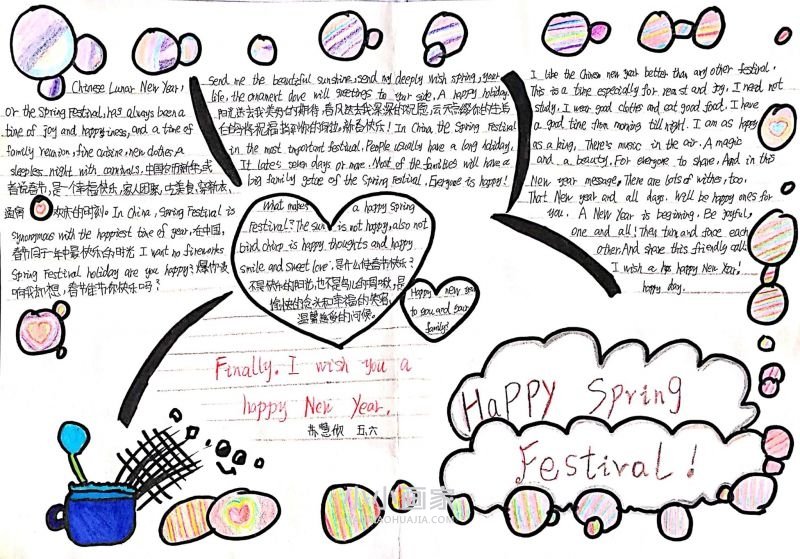 Chinese Lunar New Year!
or the Spring Festival, has always been a
time of joy and happyiness, and a time of
family reunion, fine cuisine, new clothes A
sleepless night with carnivals. 中国农历新年,或
者说春节,是一个幸福快乐,家人团聚,吃美食,穿新衣,
欢乐的时刻。In China, Spring Festival is
synonymous with the happiest time of year, 在中国,
春节同于一年中最快乐的时光 I want no fireworks
Spring Festival holiday are you happy?
send me the beautiful sunshine, send my deeply wish spring, your
life, the ornament dove will greetings to your side, A happy holiday.
新春快乐! In China, the Spring Festival
in the most important festival. People usually have a long holiday,
It lates seven days or more. Most of the families will have a
big family getoe of the Spring Festival, Everyone is happy!
What makes a happy spring
festival? The sun is not happy, also not
bird, china is happy, thoughts and happy
smile and sweet love. 是什么使春节快乐?
不是快乐的阳光,也不是
温馨
Happy new year
to you and your
family!
I like the Chinese new year better than any other festival.
This is a time especially for reast and joy, I need not
study, I wear good clothes and eat good food. I have
a good time from morning till night. I am as happy
as a king, There's music in the air. A magic
and a beauty. For everyone to share. And in this
New year message. There are lots of wishes, too.
That New year and all days. Will be happy ones for
you. A New Year is begining. Be joyful,
one and all! Then turn and face each
other. And share this friendly call.
I wish a happy New Year!
happy day.
Finally. I wish you a
happy New Year.
五、六
HaPPY Spring
Festival!
小画家
XIAOHUAJIA.COM